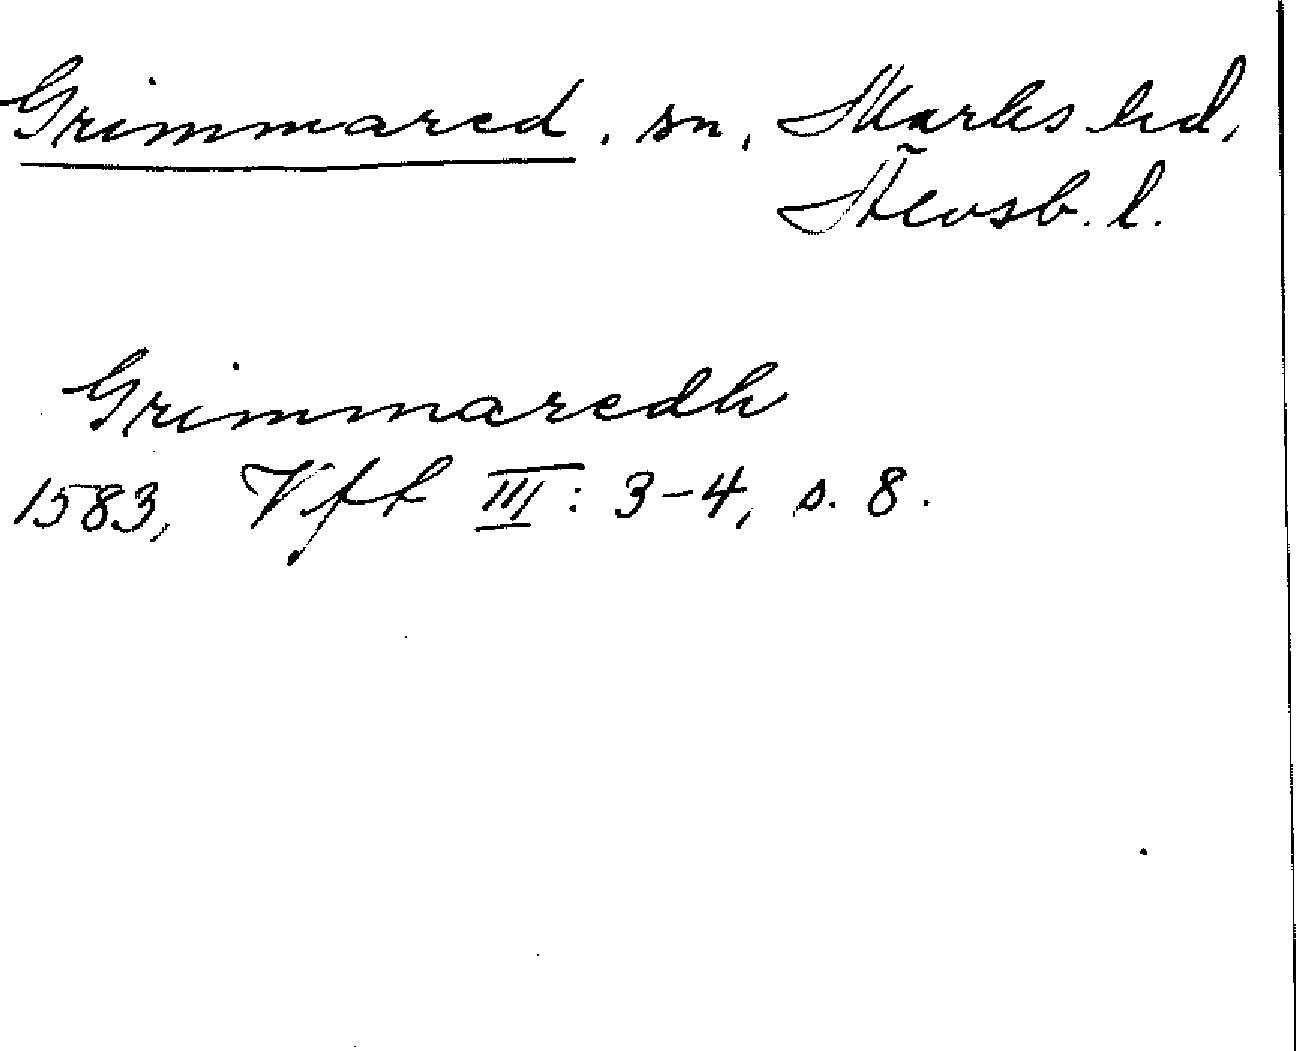 Grimmared, sn, Marks hd,
Älvsb. l.
Grimmaredh
1583, Vft III: 3-4, s. 8.